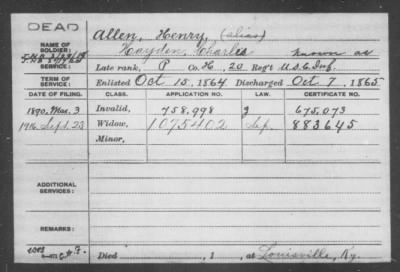 DEAD
Allen, Henry, (alias)
NAME OF SOLDIER:
Hayden, Charles known as
SERVICE:
Late rank, P Co. H, 23 Reg't U.S.C. Inf.
TERM OF SERVICE:
Enlisted Oct 15, 1864 Discharged Oct 7, 1865
DATE OF FILING. CLASS. APPLICATION NO. LAW. CERTIFICATE NO.
1890, Mar. 3 Invalid, 758.998 g 675.073
1916 Sept. 23 Widow, 1075402 Sep. 883645
Minor,
ADDITIONAL SERVICES:
REMARKS:
Died , 1 , at Louisville, Ky.